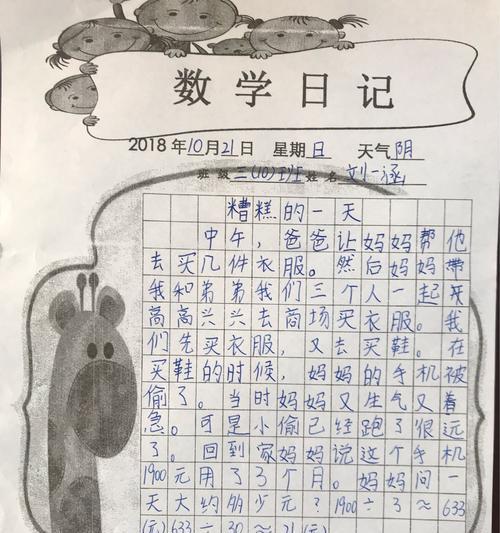 数学日记
2018年10月21日 星期日 天气阴
班级三(10)班姓名刘一涵
糟糕的一天
中午，爸爸让妈妈帮他
去买几件衣服。然后妈妈带
我和弟弟我们三个人一起天
高高兴兴去商场买衣服。我
们先买衣服，又去买鞋。在
买鞋的时候，妈妈的手机被
偷了。当时妈妈又生气又着
急。可是小偷已经跑了很远
了。回到家妈妈说这个手机
1900元用了3个月。妈妈问一
天大约多少元？1900÷3≈633
(元)633÷30≈21(元)